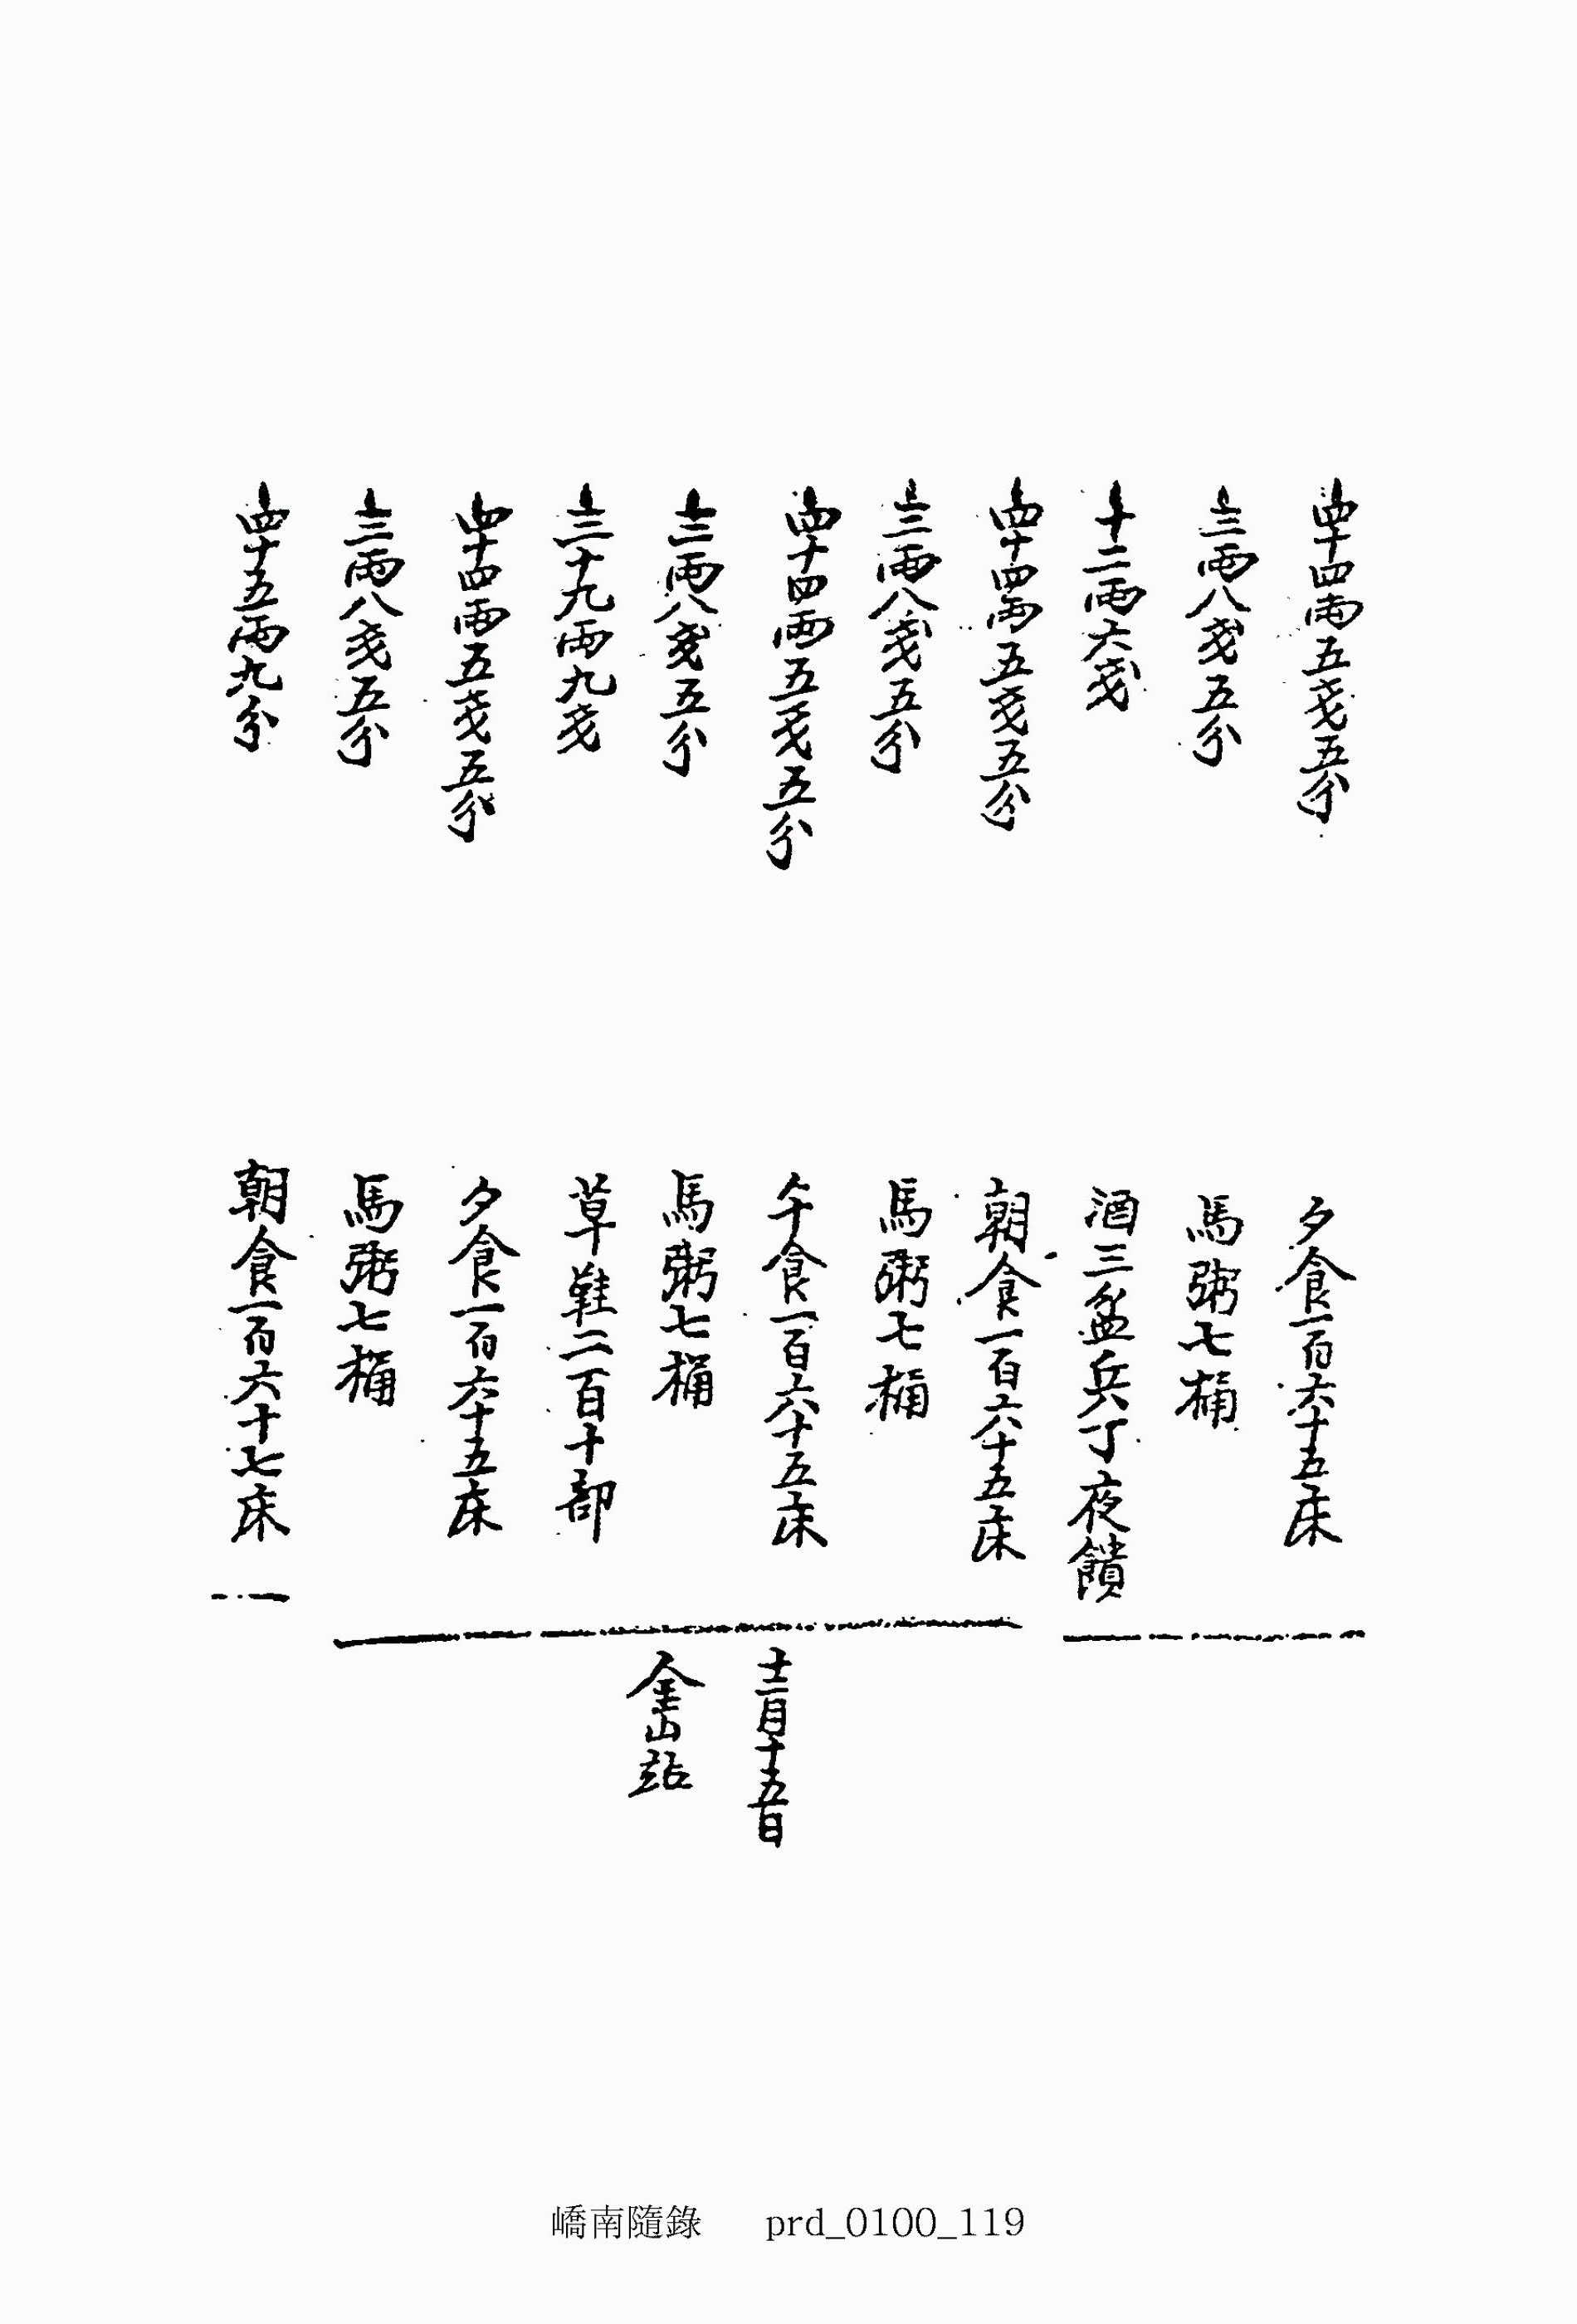 四十四兩五戔五分 夕食一百六十五床
三兩八戔五分 馬粥七桶
十二兩六戔 酒三盆兵丁夜饋
四十四兩五戔五分 朝食一百六十五床
三兩八戔五分 馬粥七桶
四十四兩五戔五分 午食一百六十五床
三兩八戔五分 馬粥七桶
三十九兩九戔 草鞋二百十部
四十四兩五戔五分 夕食一百六十五床
三兩八戔五分 馬粥七桶
四十五兩九分 朝食一百六十七床
十二月十五日
金山站
嶠南隨錄 prd_0100_119